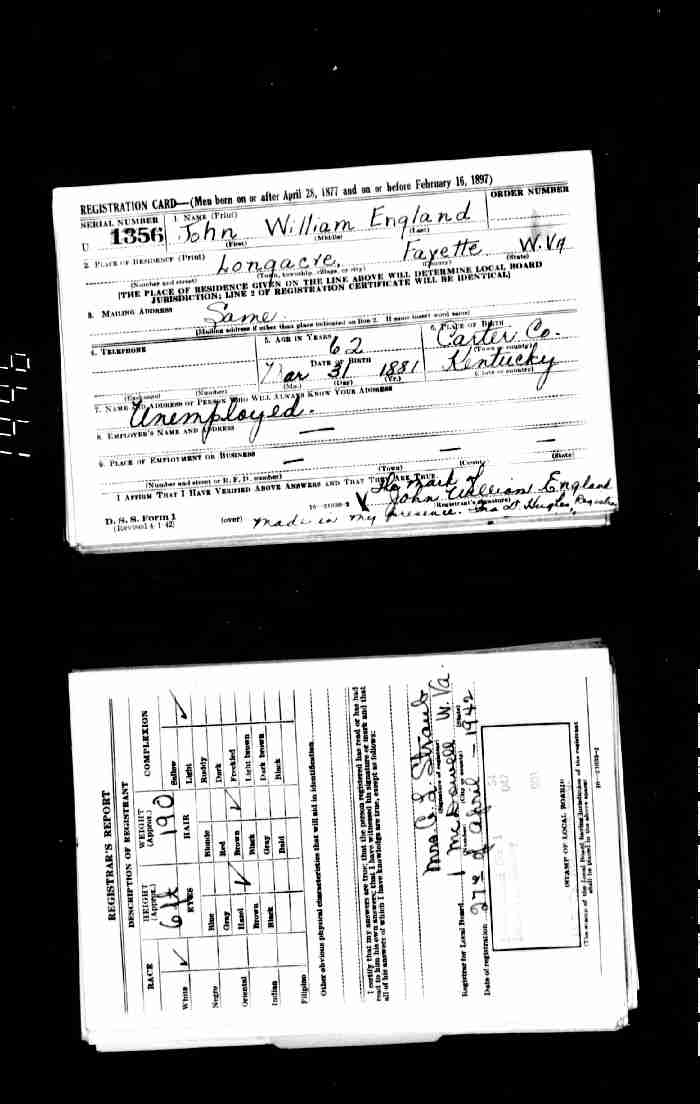 REGISTRATION CARD—(Men born on or after April 28, 1877 and on or before February 16, 1897)
SERIAL NUMBER 1. NAME (Print) ORDER NUMBER
U 1356 John William England
(First) (Middle) (Last)
2. PLACE OF RESIDENCE (Print)
Longacre, Fayette W.Va
(Number and street) (Town, township, village, or city) (County) (State)
[THE PLACE OF RESIDENCE GIVEN ON THE LINE ABOVE WILL DETERMINE LOCAL BOARD
JURISDICTION; LINE 2 OF REGISTRATION CERTIFICATE WILL BE IDENTICAL]
3. MAILING ADDRESS
Same
[Mailing address if other than place indicated on line 2. If same insert word same]
4. TELEPHONE 5. AGE IN YEARS 6. PLACE OF BIRTH
62 Carter Co.
DATE OF BIRTH (Town or county)
Mar 31 1881 Kentucky
(Exchange) (Number) (Mo.) (Day) (Yr.) (State or country)
7. NAME AND ADDRESS OF PERSON WHO WILL ALWAYS KNOW YOUR ADDRESS
Unemployed.
8. EMPLOYER'S NAME AND ADDRESS
9. PLACE OF EMPLOYMENT OR BUSINESS
(Number and street or R. F. D. number) (Town) (County) (State)
I AFFIRM THAT I HAVE VERIFIED ABOVE ANSWERS AND THAT THEY ARE TRUE.
mark of
John William England
D. S. S. Form 1
(Revised 4-1-42) (over) 16—21630-2 (Registrant's signature)
made in my presence. Hughes, Registrar
REGISTRAR'S REPORT
DESCRIPTION OF REGISTRANT
RACE HEIGHT (Approx.) WEIGHT (Approx.) COMPLEXION
6 ft 190
EYES HAIR
White Blue Blonde Sallow
Negro Gray Red Light
Oriental Hazel Brown Ruddy
Indian Brown Black Dark
Filipino Black Gray Freckled
Bald Light brown
Dark brown
Black
Other obvious physical characteristics that will aid in identification
I certify that my answers are true; that the person registered has read or has had
read to him his own answers; that I have witnessed his signature or mark and that
all of his answers of which I have knowledge are true, except as follows:
Mrs. C. L. Straub
(Signature of registrar)
Registrar for Local Board 1 McDowell W. Va.
(Number) (City or county) (State)
Date of registration 27th of April - 1942
(STAMP OF LOCAL BOARD)
(The stamp of the Local Board having jurisdiction of the registrant
shall be placed in the above space)
16—21630-2